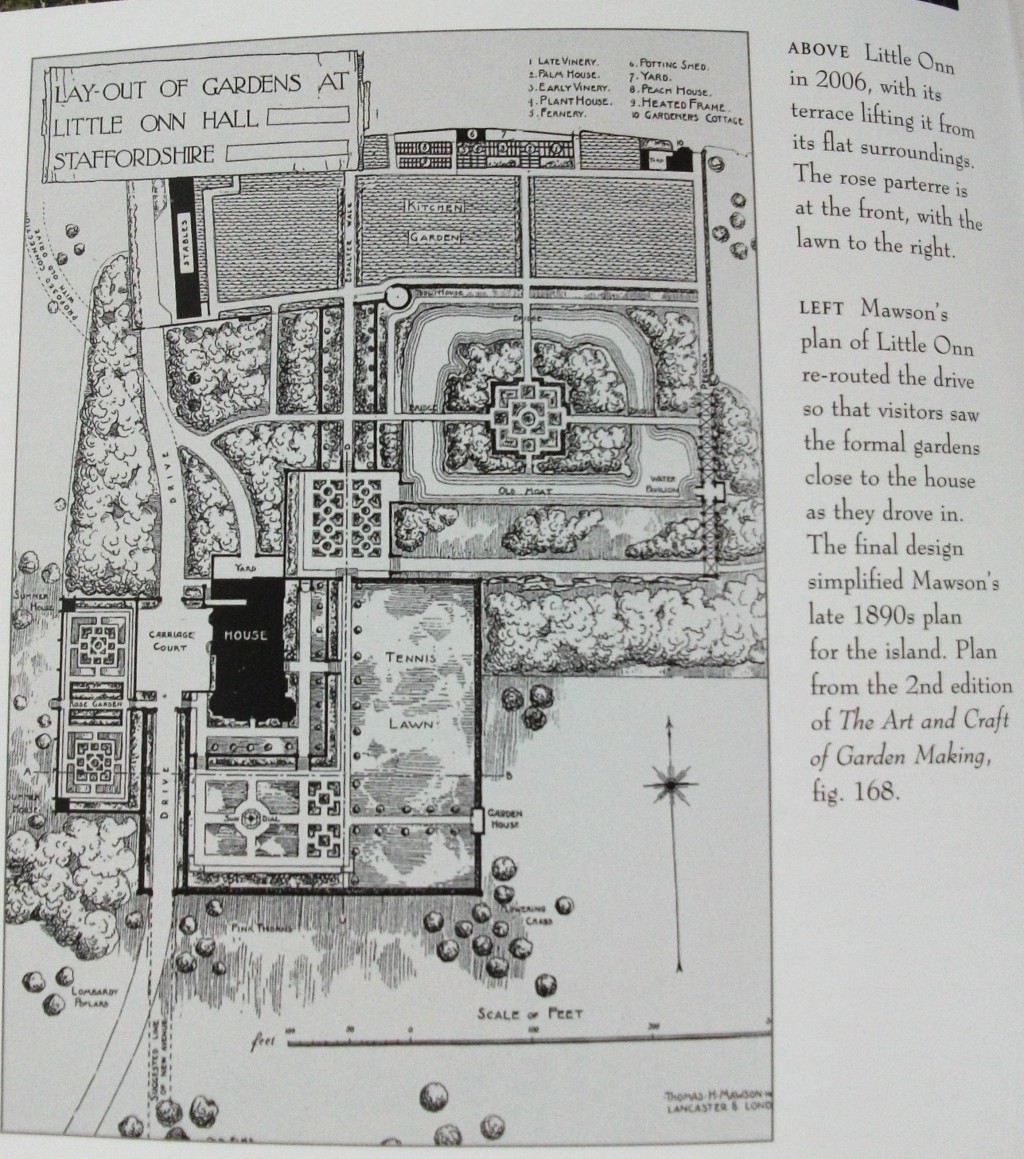 LAY-OUT OF GARDENS AT
LITTLE ONN HALL
STAFFORDSHIRE
1 LATE VINERY.
2. PALM HOUSE.
3. EARLY VINERY.
4. PLANT HOUSE.
5. FERNERY.
6. POTTING SHED.
7. YARD.
8. PEACH HOUSE.
9. HEATED FRAME.
10 GARDENERS COTTAGE
6
7
10
STABLES
ESPALIER WALK
KITCHEN
GARDEN
PROPOSED CONNECTION
WITH OLD DRIVE
BRIDGE
BRIDGE
DRIVE
OLD MOAT
WATER
PAVILION
YARD
SUMMER
HOUSE
CARRIAGE
COURT
HOUSE
TENNIS
LAWN
ROSE GARDEN
A
B
SUMMER
HOUSE
DRIVE
SUN DIAL
GARDEN
HOUSE
PINK THORNS
FLOWERING
CRABS
LOMBARDY
POPLARS
SUGGESTED LINE
OF NEW AVENUE
SCALE OF FEET
feet
100 50 0 100 200
THOMAS·H·MAWSON
LANCASTER & LOND
ABOVE Little Onn
in 2006, with its
terrace lifting it from
its flat surroundings.
The rose parterre is
at the front, with the
lawn to the right.
LEFT Mawson's
plan of Little Onn
re-routed the drive
so that visitors saw
the formal gardens
close to the house
as they drove in.
The final design
simplified Mawson's
late 1890s plan
for the island. Plan
from the 2nd edition
of The Art and Craft
of Garden Making,
fig. 168.